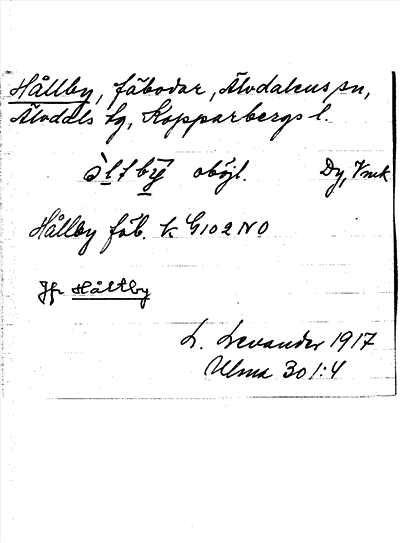 Hållby, fäbodar, Älvdalens sn,
Älvdals tg, Kopparbergs l.
òltbȳ oböjl. Dy, Vmk
Hållby fäb. k G102NO
Jfr Håltby
L. Levander 1917
Ulma 301:4